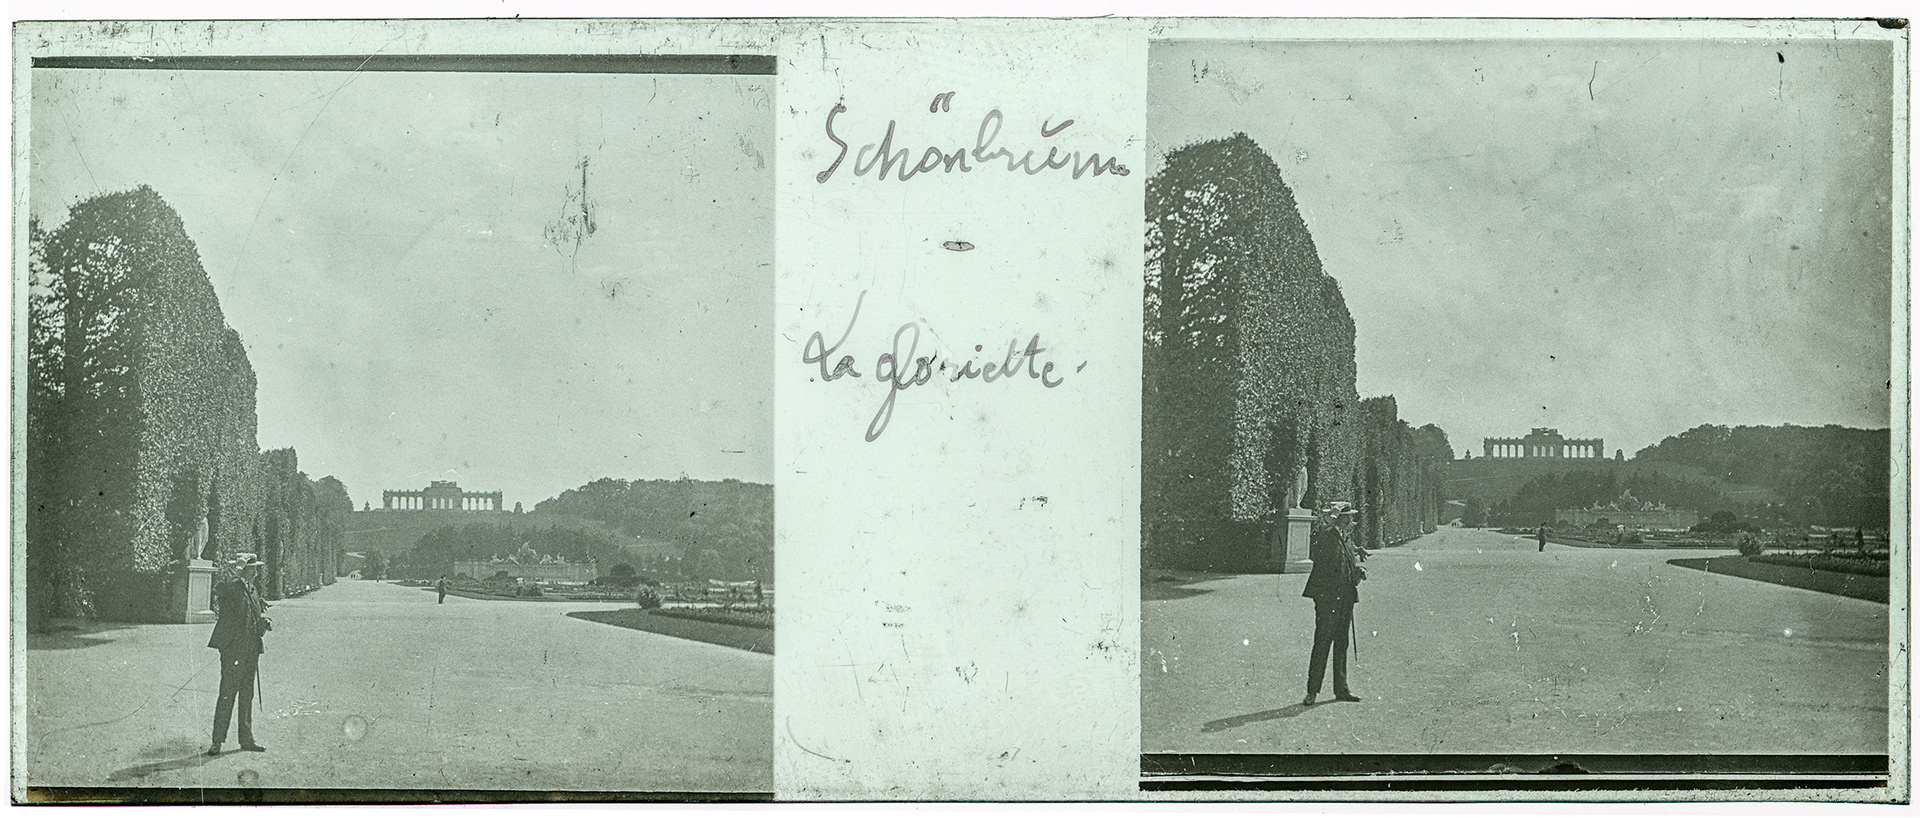 Schönbrŭnn
-
La gloriette.